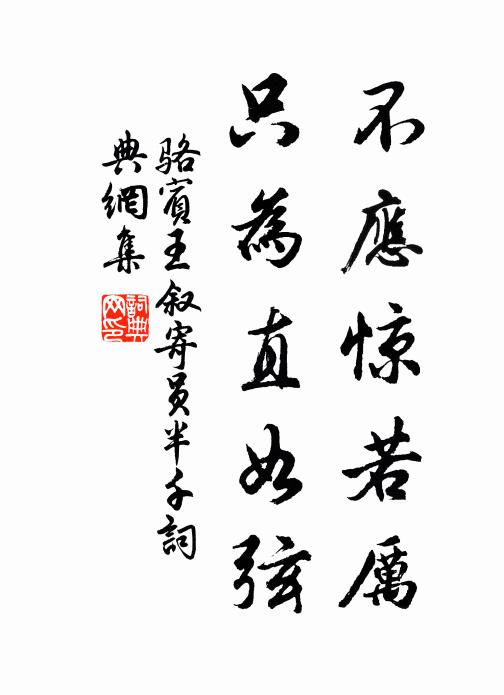 不應惊若厲
只為直如弦
駱賓王叙寄员半千詞
典網集
詞典网印